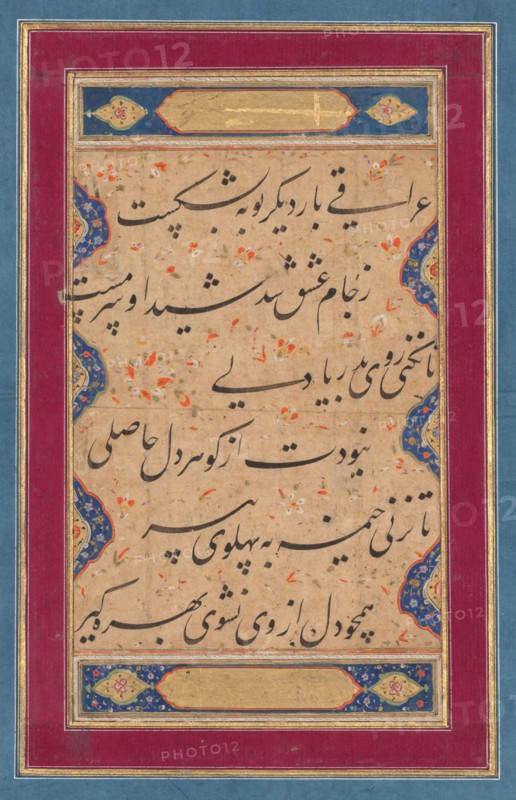 عراقی بار دیگر توبه بشکست
ز جام عشق شد شیدا و سرمست
تا نکنی روی بدریا دلی
نبودت از گوهر دل حاصلی
تا نزنی خیمه به پهلوی پیر
همچو دل از وی نشوی بهره گیر
PHOTO12